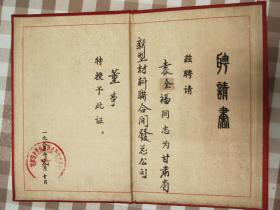 聘請書
兹聘请
袁全福同志为甘肃省
新型材料联合开发总公司
董事
特授予此证。